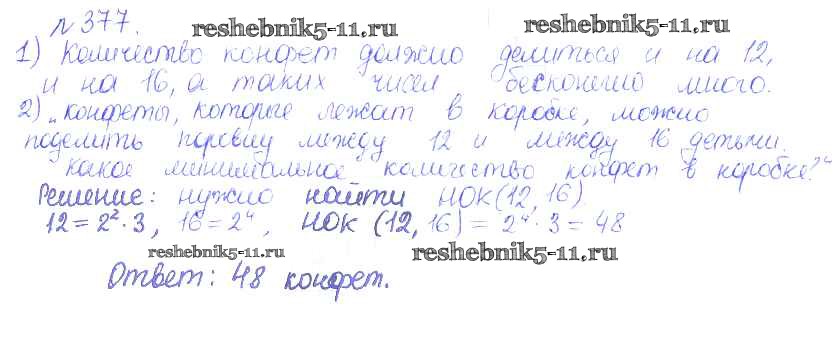 № 377. reshebnik5-11.ru reshebnik5-11.ru
1) Количество конфет должно делиться и на 12,
и на 16, а таких чисел бесконечно много.
2) „Конфеты, которые лежат в коробке, можно
поделить поровну между 12 и между 16 детьми.
Какое минимальное количество конфет в коробке?“
Решение: нужно найти НОК(12, 16)
12 = 2² · 3, 16 = 2⁴, НОК (12, 16) = 2⁴ · 3 = 48
reshebnik5-11.ru reshebnik5-11.ru
Ответ: 48 конфет.